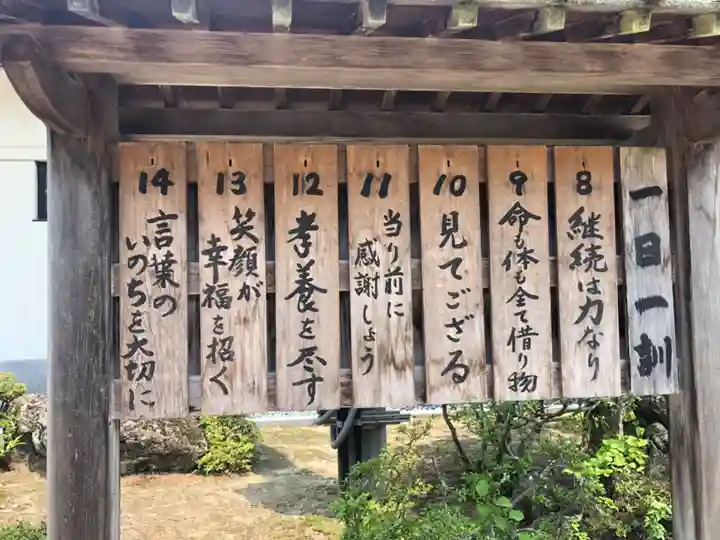 一日一訓
8
継続は力なり
9
命も体も全て借り物
10
見てござる
11
当り前に
感謝しょう
12
孝養を尽す
13
笑顔が
幸福を招く
14
言葉の
いのちを大切に